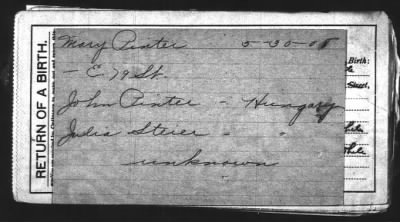 RETURN OF A BIRTH.
Mary Pinter 5-30-08
- E 79 St.
John Pinter - Hungary
Julia Steier - "
unknown
Birth:
Street,